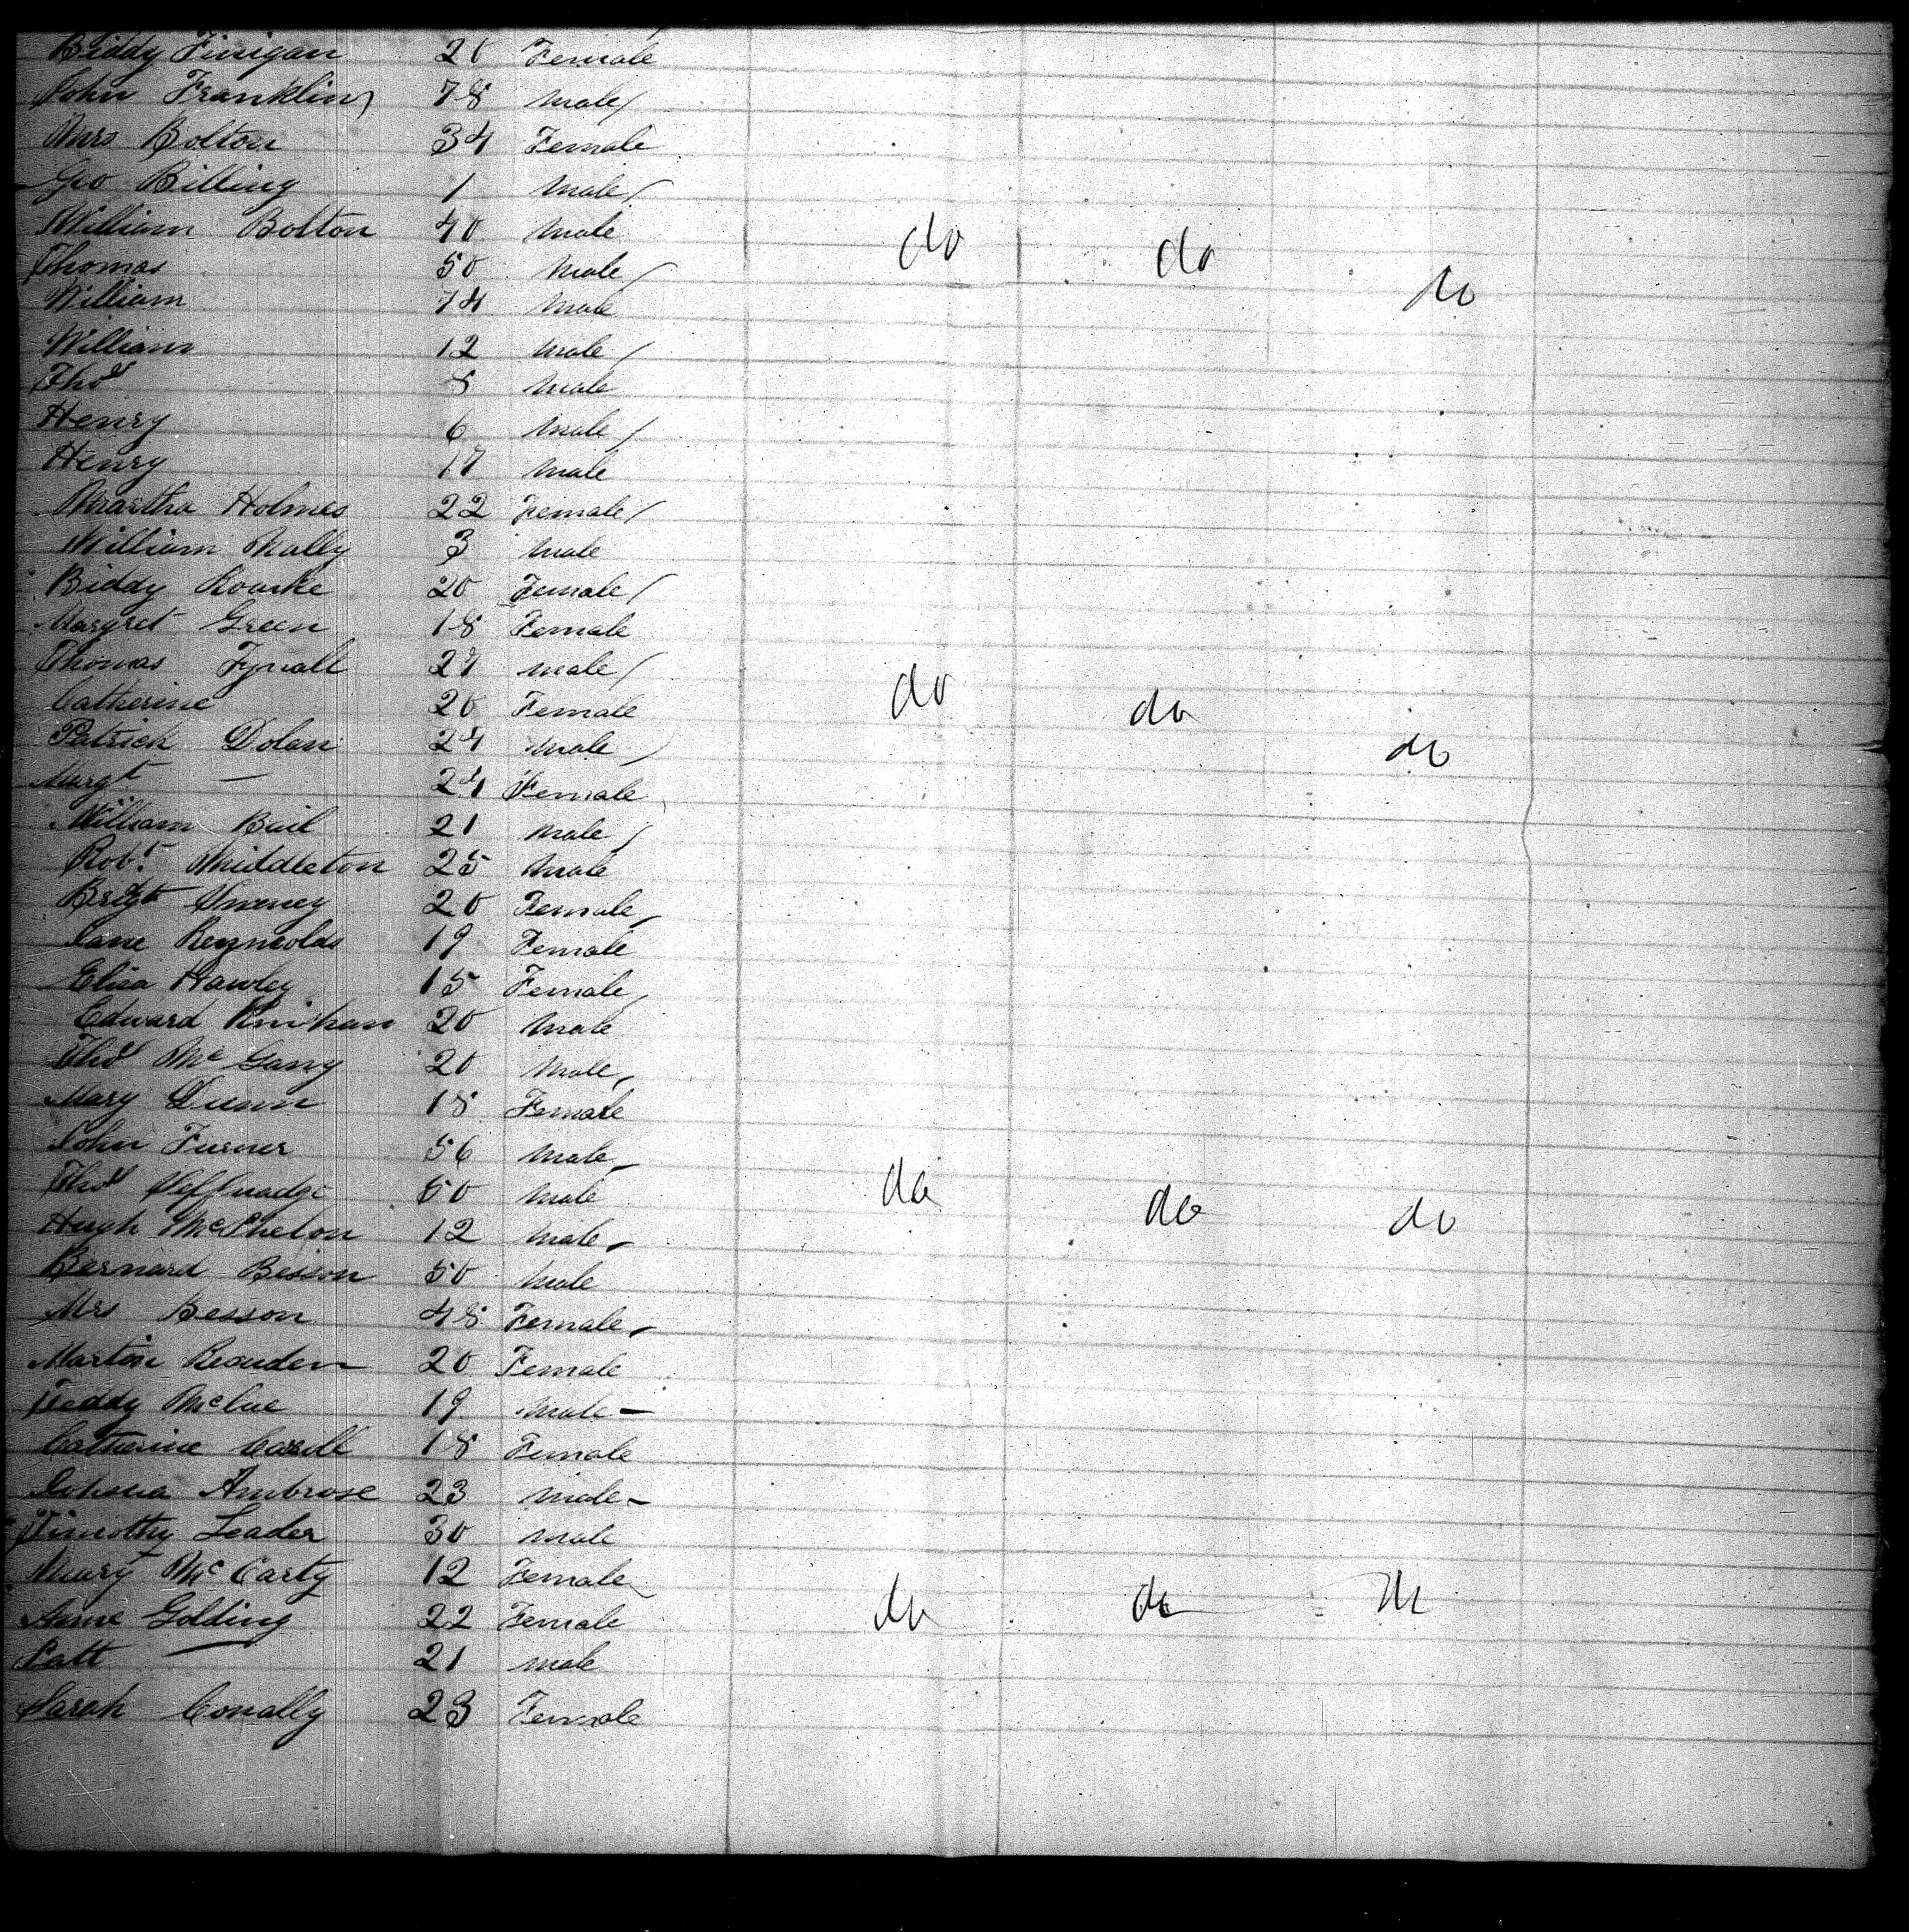 Biddy Finigan 20 Female
John Franklin 78 Male
Mrs Bolton 34 Female
Geo Billing 1 Male
William Bolton 40 Male do do
Thomas 50 Male do
William 74 Male
William 12 Male
Thos 8 Male
Henry 6 Male
Henry 17 Male
Martha Holmes 22 Female
William Nally 3 Male
Biddy Rourke 20 Female
Margret Green 18 Female
Thomas Tynall 27 Male do
Catherine 20 Female do
Patrick Dolan 24 Male do
Margt — 24 Female
William Buil 21 Male
Robt Middleton 25 Male
Brigt 20 Female
Jane Reynolds 19 Female
Eliza Hawley 15 Female
Edward 20 Male
Thos McGarry 20 Male
Mary Dunn 18 Female
John Turner 56 Male
Thos 50 Male do do do
Hugh McPhelon 12 Male
Barnard Besson 50 Male
Mrs Besson 48 Female
Martin 20 Female
Teddy McCue 19 Male
Catherine 18 Female
Ambrose 23 Male
Timothy Leader 30 Male
Mary McCarty 12 Female
Anne Golding 22 Female do do do
Patt — 21 Male
Sarah Conally 23 Female